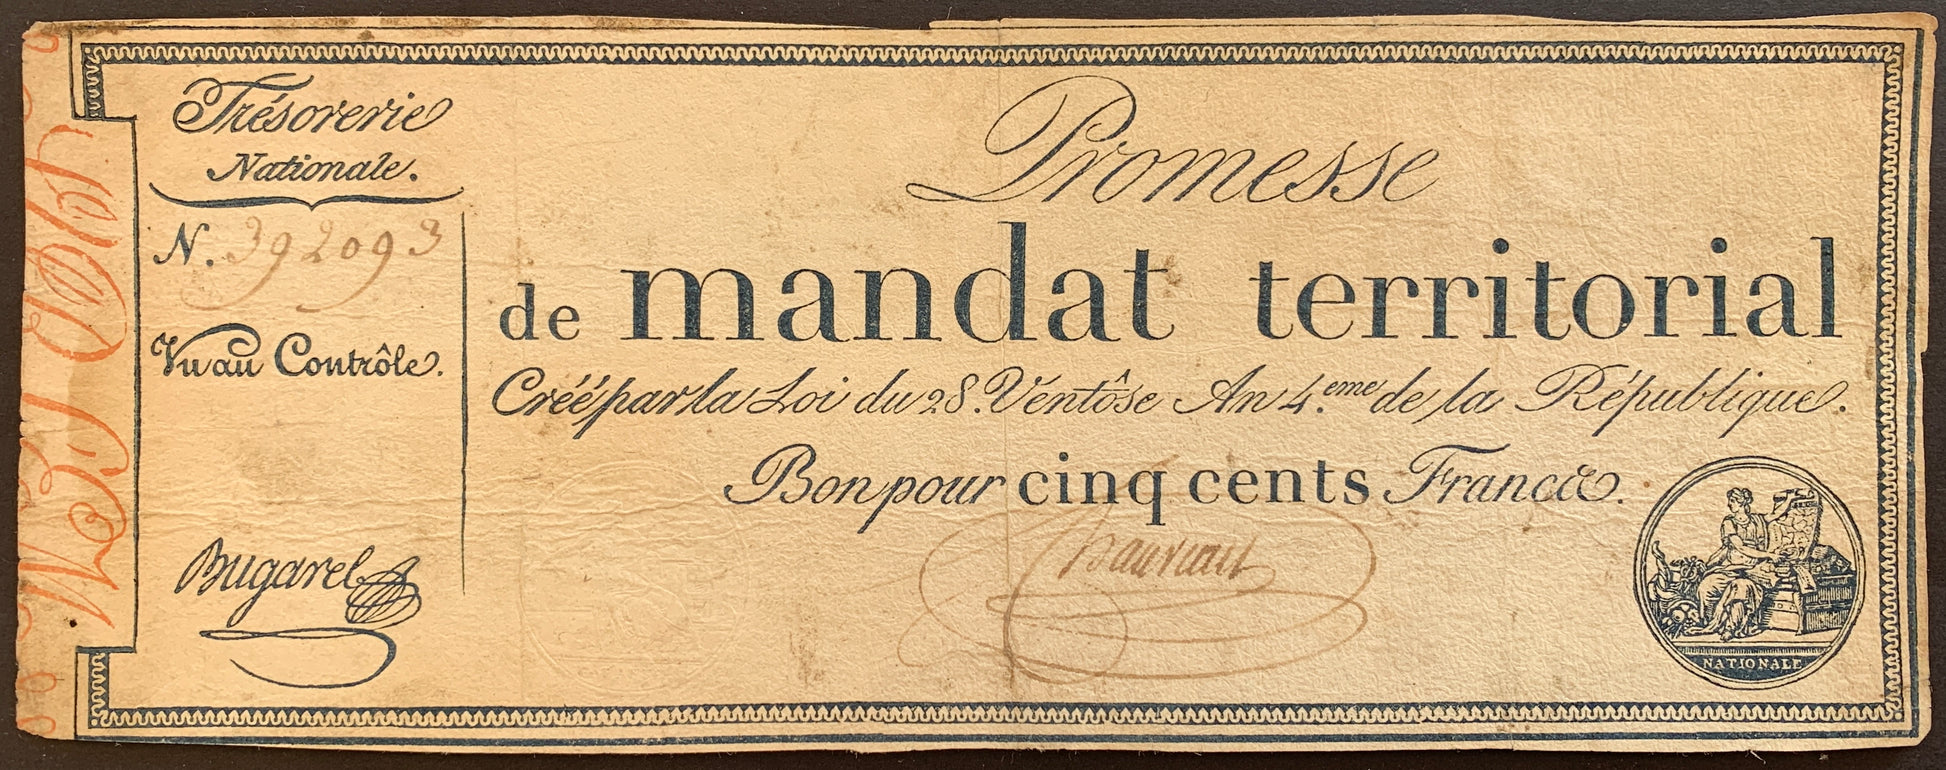 Trésorerie
Nationale.
N. 392093
Vu au Contrôle.
Bugarel
Promesse
de mandat territorial
Créé par la Loi du 28. Ventôse An 4.eme de la République.
Bon pour cinq cents Francs.
NATIONALE